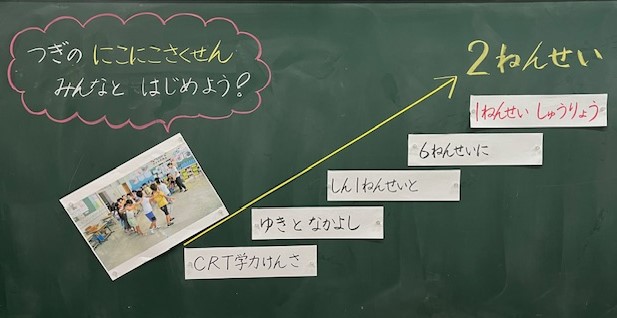 つぎの にこにこさくせん
みんなと はじめよう?
2ねんせい
1ねんせい しゅうりょう
6ねんせいに
しん1ねんせいと
ゆきと なかよし
CRT学力けんさ